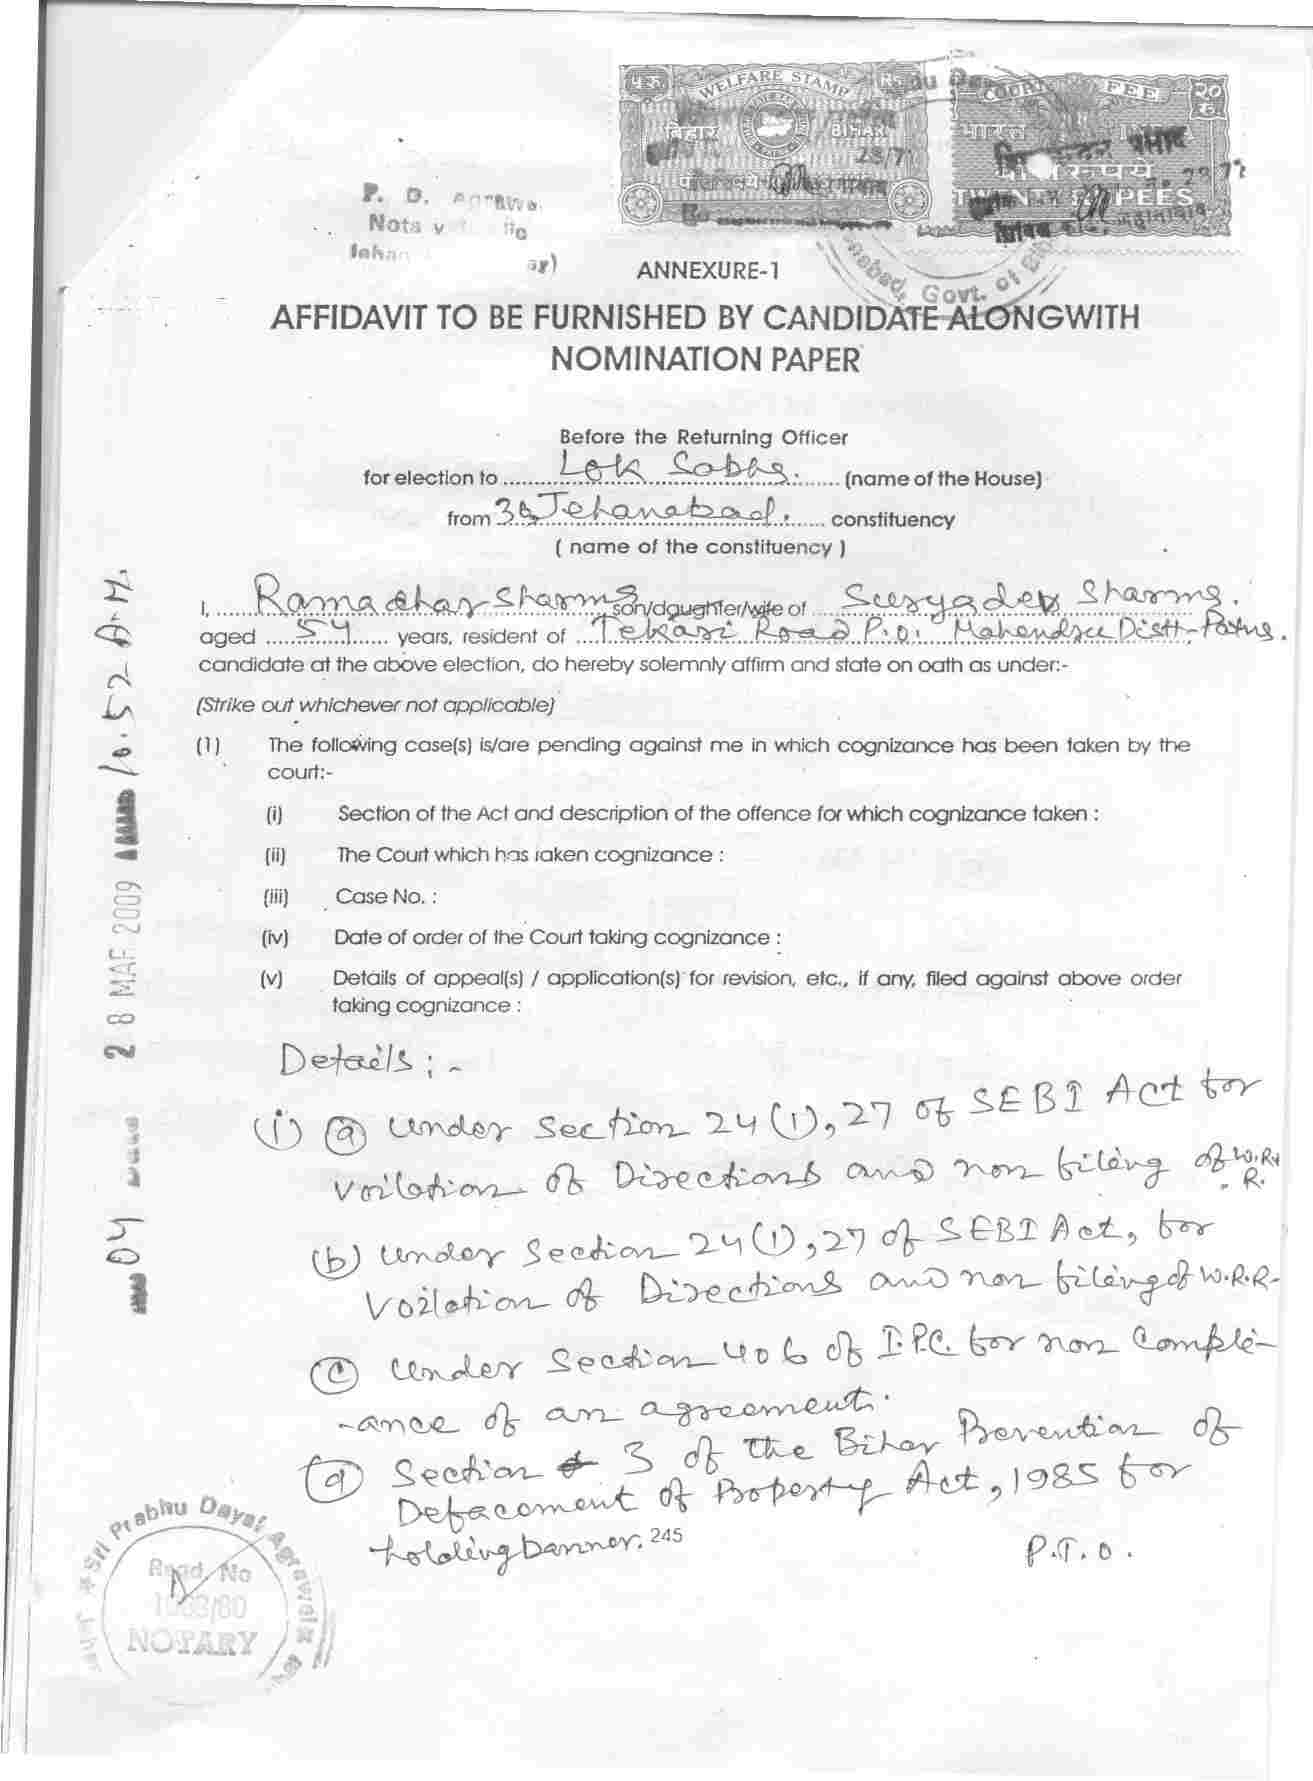 WELFARE STAMP
बिहार BIHAR
COURT FEE २० रु.
भारत INDIA
TWENTY RUPEES
P. D. Agrawa
Nota
Jehan
Govt. of
ANNEXURE-1
AFFIDAVIT TO BE FURNISHED BY CANDIDATE ALONGWITH
NOMINATION PAPER
Before the Returning Officer
for election to Lok Sabha. (name of the House)
from 36 Jehanabad. constituency
( name of the constituency )
I, Ramadhar Sharma son/daughter/wife of Suryadev Sharma.
aged 54 years, resident of Tekari Road P.O. Mahendru Distt-Patna.
candidate at the above election, do hereby solemnly affirm and state on oath as under:-
(Strike out whichever not applicable)
(1) The following case(s) is/are pending against me in which cognizance has been taken by the
court:-
(i) Section of the Act and description of the offence for which cognizance taken :
(ii) The Court which has taken cognizance :
(iii) Case No. :
(iv) Date of order of the Court taking cognizance :
(v) Details of appeal(s) / application(s) for revision, etc., if any, filed against above order
taking cognizance :
Details : -
(i) (a) Under Section 24(1), 27 of SEBI Act for
voilation of Directions and non filing of W.R.
R.
(b) Under Section 24(1), 27 of SEBI Act, for
voilation of Directions and non filing of W.R.R-
(c) Under Section 406 of I.P.C. for non Complé-
-ance of an agreement.
(d) Section 3 of the Bihar Prevention of
Defacement of Property Act, 1985 for
holding banner. 245
P.T.O.
04 28 MAR 2009 10.52 A.M.
Sri Prabhu Dayal Agrawala
Regd. No
NOTARY